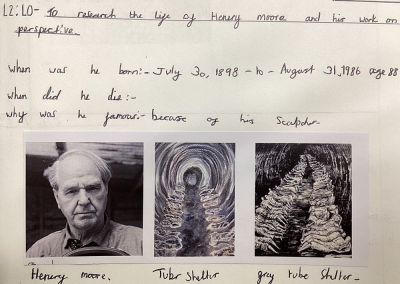 L2:LO- To research the life of Henery moore and his work on
perspective.
when was he born:- July 30, 1898 - to - August 31, 1986 age 88
when did he die :-
why was he famous:- because of his Sculpdur
Henery moore.
Tube Sheltur
grey tube Shelter-